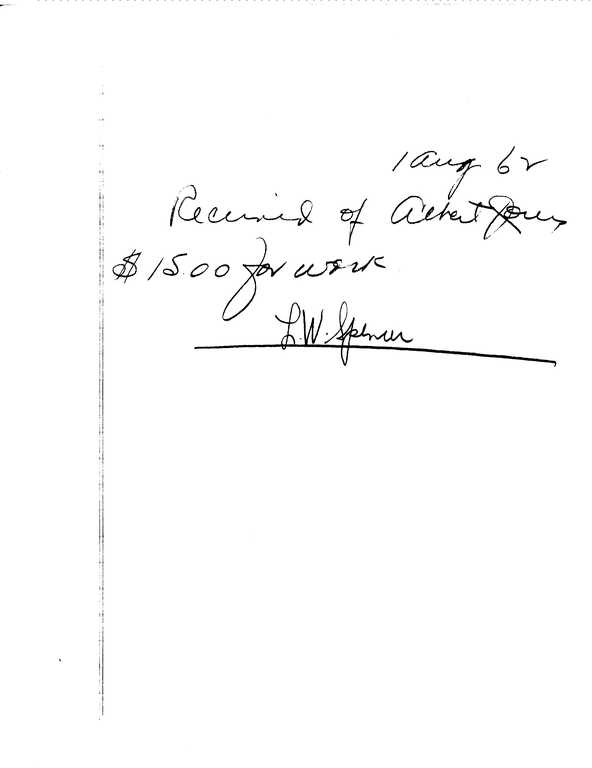 1 Aug 62
Received of Albert Jones
$15.00 for work
L.W. Spencer